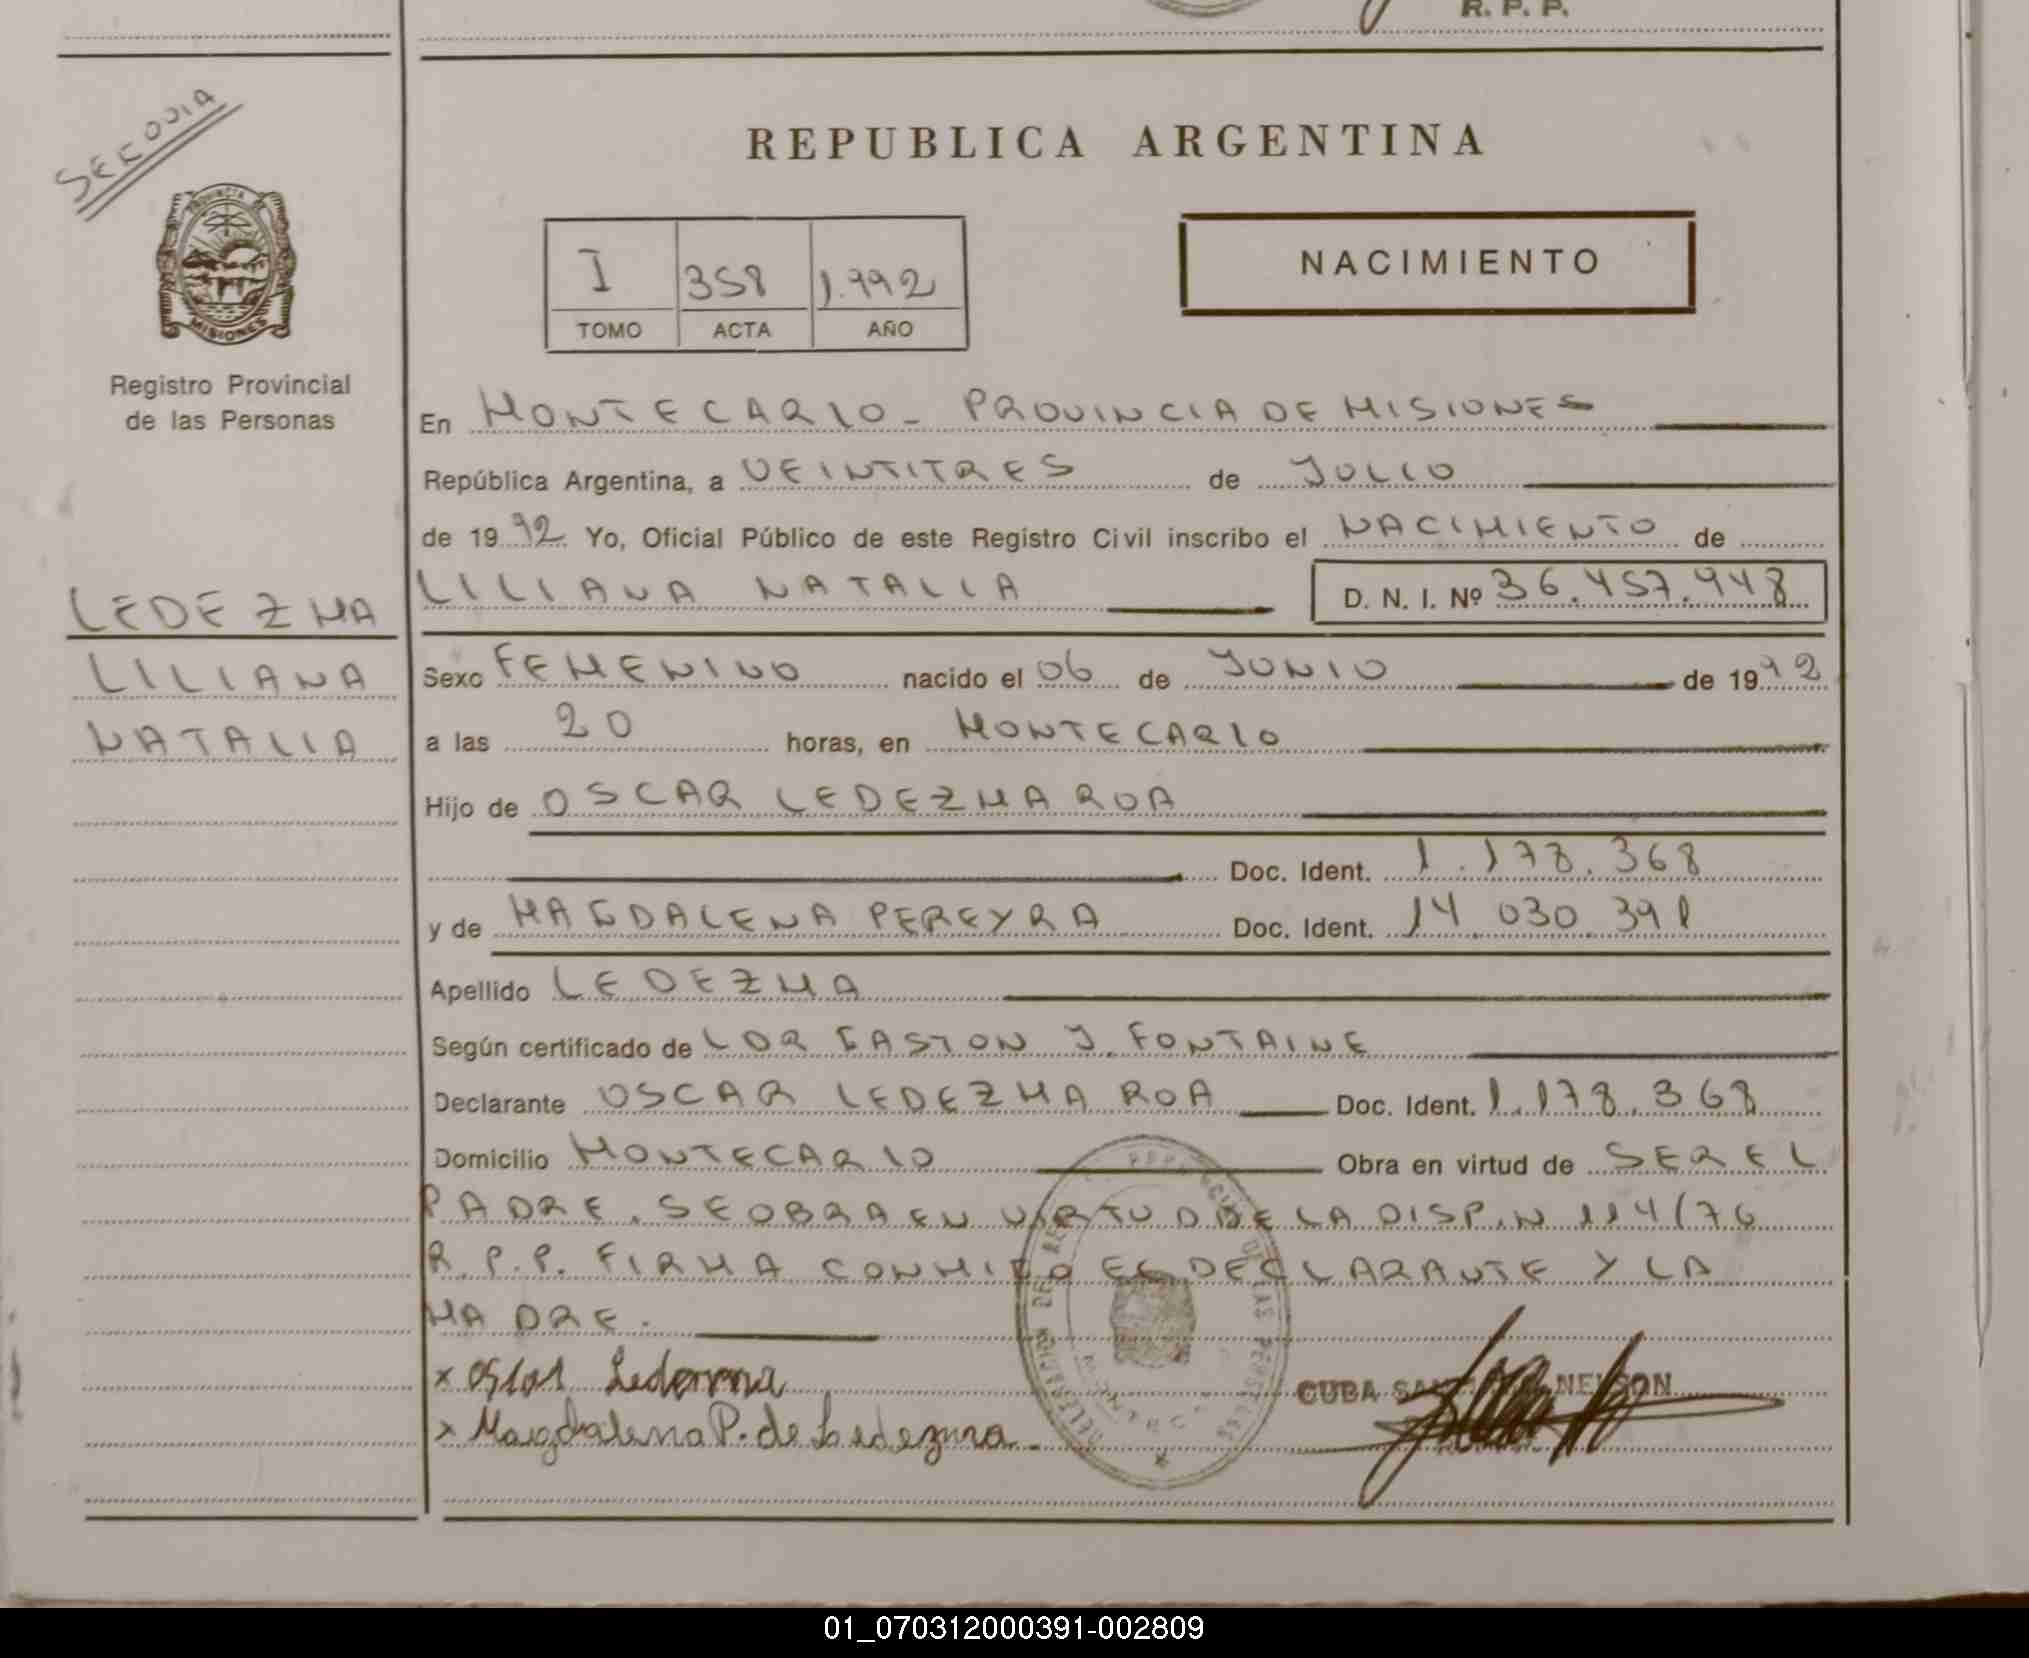 R. P. P.
SEKOVIA
REPUBLICA ARGENTINA
PROVINCIA DE
MISIONES
I 358 1.992
TOMO ACTA AÑO
NACIMIENTO
Registro Provincial
de las Personas
En MONTECARLO - PROVINCIA DE MISIONES
República Argentina, a VEINTITRES de JULIO
de 1992 Yo, Oficial Público de este Registro Civil inscribo el NACIMIENTO de
LILIANA NATALIA D. N. I. Nº 36.457.948
LEDEZMA
LILIANA
NATALIA
Sexo FEMENINO nacido el 06 de JUNIO de 1992
a las 20 horas, en MONTECARLO
Hijo de OSCAR LEDEZMA ROA
Doc. Ident. 1.178.368
y de MAGDALENA PEREYRA Doc. Ident. 14.030.391
Apellido LEDEZMA
Según certificado de LDR GASTON J. FONTAINE
Declarante OSCAR LEDEZMA ROA Doc. Ident. 1.178.368
Domicilio MONTECARLO Obra en virtud de SER EL
PADRE. SE OBRA EN VIRTUD DE LA DISP. N 114/76
R.P.P. FIRMA CONMIGO EL DECLARANTE Y LA
MADRE.
x Ledezma
x Magdalena P. de Ledezma
CUBA NELSON
DELEGACION DE LAS PERSONAS
01_070312000391-002809